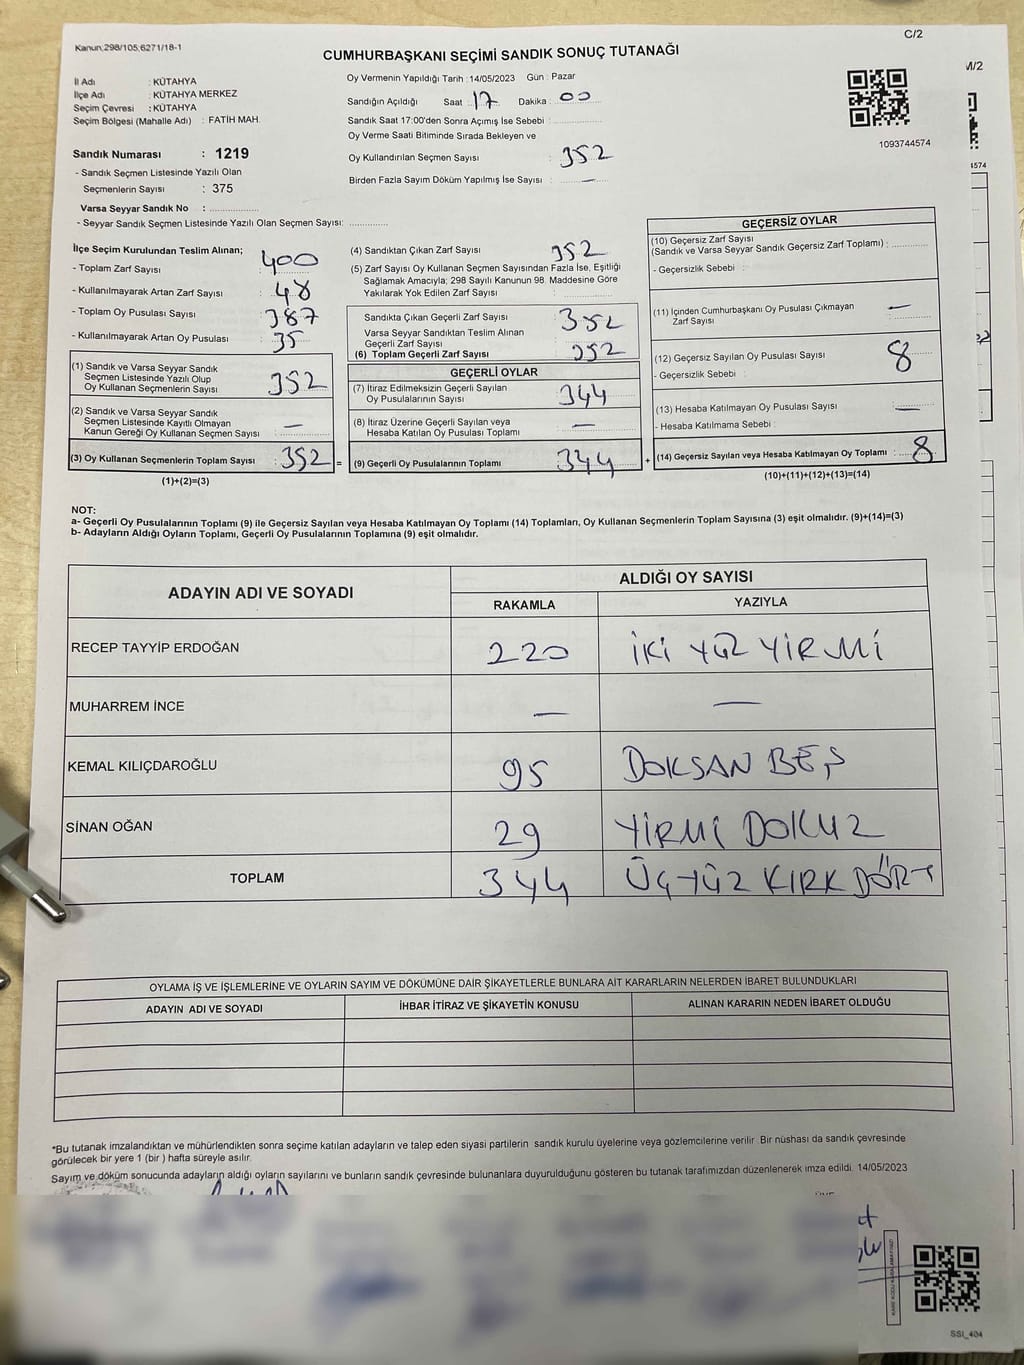 Kanun;298/105;6271/18-1
C/2
CUMHURBAŞKANI SEÇİMİ SANDIK SONUÇ TUTANAĞI
M/2
İl Adı : KÜTAHYA
İlçe Adı : KÜTAHYA MERKEZ
Seçim Çevresi : KÜTAHYA
Seçim Bölgesi (Mahalle Adı) : FATİH MAH.
Sandık Numarası : 1219
- Sandık Seçmen Listesinde Yazılı Olan
Seçmenlerin Sayısı : 375
Varsa Seyyar Sandık No :
- Seyyar Sandık Seçmen Listesinde Yazılı Olan Seçmen Sayısı:
Oy Vermenin Yapıldığı Tarih :14/05/2023 Gün : Pazar
Sandığın Açıldığı Saat : 17 Dakika : 00
Sandık Saat 17:00'den Sonra Açımış İse Sebebi :
Oy Verme Saati Bitiminde Sırada Bekleyen ve
Oy Kullandırılan Seçmen Sayısı : 352
Birden Fazla Sayım Döküm Yapılmış İse Sayısı : —
1093744574
1574
İlçe Seçim Kurulundan Teslim Alınan;
- Toplam Zarf Sayısı : 400
- Kullanılmayarak Artan Zarf Sayısı : 48
- Toplam Oy Pusulası Sayısı : 387
- Kullanılmayarak Artan Oy Pusulası : 35
(1) Sandık ve Varsa Seyyar Sandık
Seçmen Listesinde Yazılı Olup
Oy Kullanan Seçmenlerin Sayısı : 352
(2) Sandık ve Varsa Seyyar Sandık
Seçmen Listesinde Kayıtlı Olmayan
Kanun Gereği Oy Kullanan Seçmen Sayısı : —
(3) Oy Kullanan Seçmenlerin Toplam Sayısı : 352 =
(1)+(2)=(3)
(4) Sandıktan Çıkan Zarf Sayısı : 352
(5) Zarf Sayısı Oy Kullanan Seçmen Sayısından Fazla İse, Eşitliği
Sağlamak Amacıyla; 298 Sayılı Kanunun 98. Maddesine Göre
Yakılarak Yok Edilen Zarf Sayısı :
Sandıkta Çıkan Geçerli Zarf Sayısı : 352
Varsa Seyyar Sandıktan Teslim Alınan
Geçerli Zarf Sayısı :
(6) Toplam Geçerli Zarf Sayısı 352
GEÇERLİ OYLAR
(7) İtiraz Edilmeksizin Geçerli Sayılan
Oy Pusulalarının Sayısı : 344
(8) İtiraz Üzerine Geçerli Sayılan veya
Hesaba Katılan Oy Pusulası Toplamı : —
(9) Geçerli Oy Pusulalarının Toplamı : 344 +
GEÇERSİZ OYLAR
(10) Geçersiz Zarf Sayısı
(Sandık ve Varsa Seyyar Sandık Geçersiz Zarf Toplamı) :
- Geçersizlik Sebebi :
(11) İçinden Cumhurbaşkanı Oy Pusulası Çıkmayan
Zarf Sayısı : —
(12) Geçersiz Sayılan Oy Pusulası Sayısı : 8
- Geçersizlik Sebebi :
(13) Hesaba Katılmayan Oy Pusulası Sayısı : —
- Hesaba Katılmama Sebebi :
(14) Geçersiz Sayılan veya Hesaba Katılmayan Oy Toplamı : 8
(10)+(11)+(12)+(13)=(14)
NOT:
a- Geçerli Oy Pusulalarının Toplamı (9) ile Geçersiz Sayılan veya Hesaba Katılmayan Oy Toplamı (14) Toplamları, Oy Kullanan Seçmenlerin Toplam Sayısına (3) eşit olmalıdır. (9)+(14)=(3)
b- Adayların Aldığı Oyların Toplamı, Geçerli Oy Pusulalarının Toplamına (9) eşit olmalıdır.
ADAYIN ADI VE SOYADI ALDIĞI OY SAYISI
RAKAMLA YAZIYLA
RECEP TAYYİP ERDOĞAN 220 İKİ YÜZ YİRMİ
MUHARREM İNCE — —
KEMAL KILIÇDAROĞLU 95 DOKSAN BEŞ
SİNAN OĞAN 29 YİRMİ DOKUZ
TOPLAM 344 ÜÇYÜZ KIRK DÖRT
OYLAMA İŞ VE İŞLEMLERİNE VE OYLARIN SAYIM VE DÖKÜMÜNE DAİR ŞİKAYETLERLE BUNLARA AİT KARARLARIN NELERDEN İBARET BULUNDUKLARI
ADAYIN ADI VE SOYADI İHBAR İTİRAZ VE ŞİKAYETİN KONUSU ALINAN KARARIN NEDEN İBARET OLDUĞU
*Bu tutanak imzalandıktan ve mühürlendikten sonra seçime katılan adayların ve talep eden siyasi partilerin sandık kurulu üyelerine veya gözlemcilerine verilir. Bir nüshası da sandık çevresinde
görülecek bir yere 1 (bir ) hafta süreyle asılır.
Sayım ve döküm sonucunda adayların aldığı oyların sayılarını ve bunların sandık çevresinde bulunanlara duyurulduğunu gösteren bu tutanak tarafımızdan düzenlenerek imza edildi. 14/05/2023
SSI_404